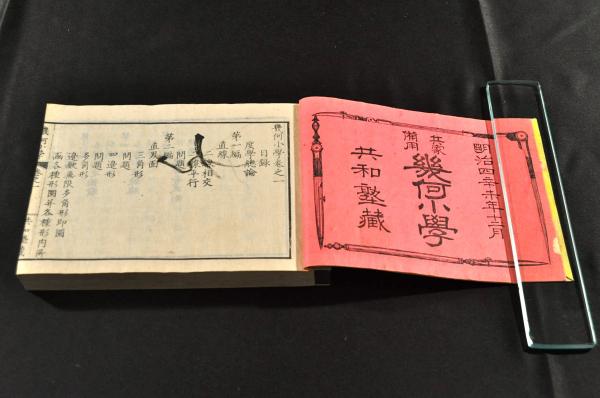 明治四辛未年十二月
兵家
備用
幾何小學
共和塾藏
幾何小學卷之一
目録
度學總論
第一編
直線
二線相交
二線平行
問題
第二編
直線面
三角形
問題
四邊形
問題
多角形
邊數無限多角形即圜